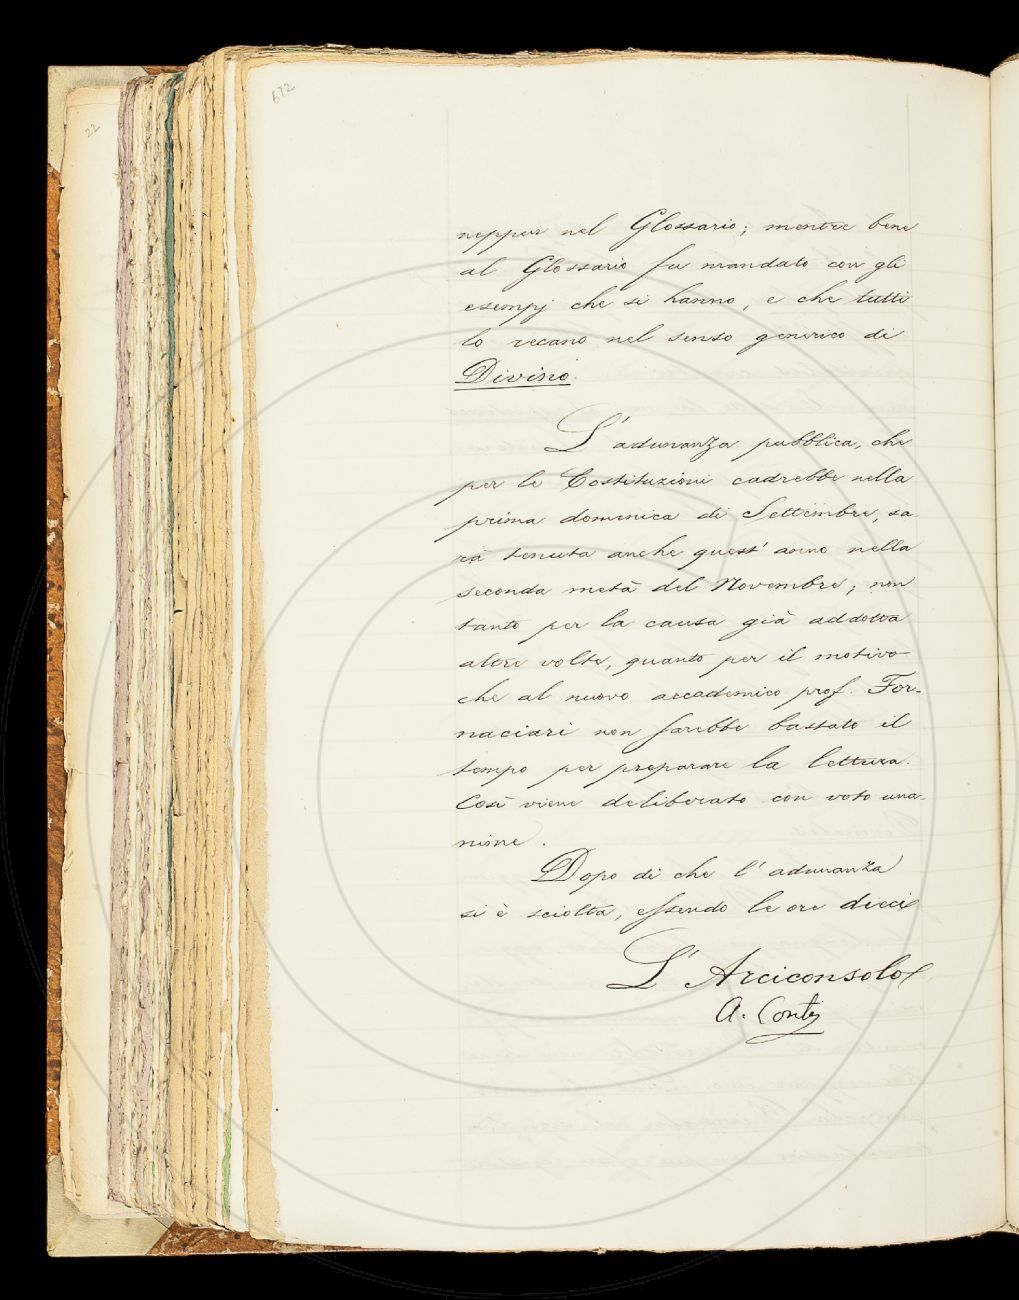 22
672
neppur nel Glossario; mentre bene
al Glossario fu mandato con gli
esempj che si hanno, e che tutti
lo recano nel senso generico di
Divino.
L'adunanza pubblica, che
per le Costituzioni cadrebbe nella
prima domenica di Settembre, sa
rà tenuta anche quest'anno nella
seconda metà del Novembre; non
tanto per la causa già addotta
altre volte, quanto per il motivo
che al nuovo accademico prof. For-
naciari non sarebbe bastato il
tempo per preparare la lettura.
Così viene deliberato con voto una-
nime.
Dopo di che l'adunanza
si è sciolta, essendo le ore dieci
L'Arciconsolo
A. Conti